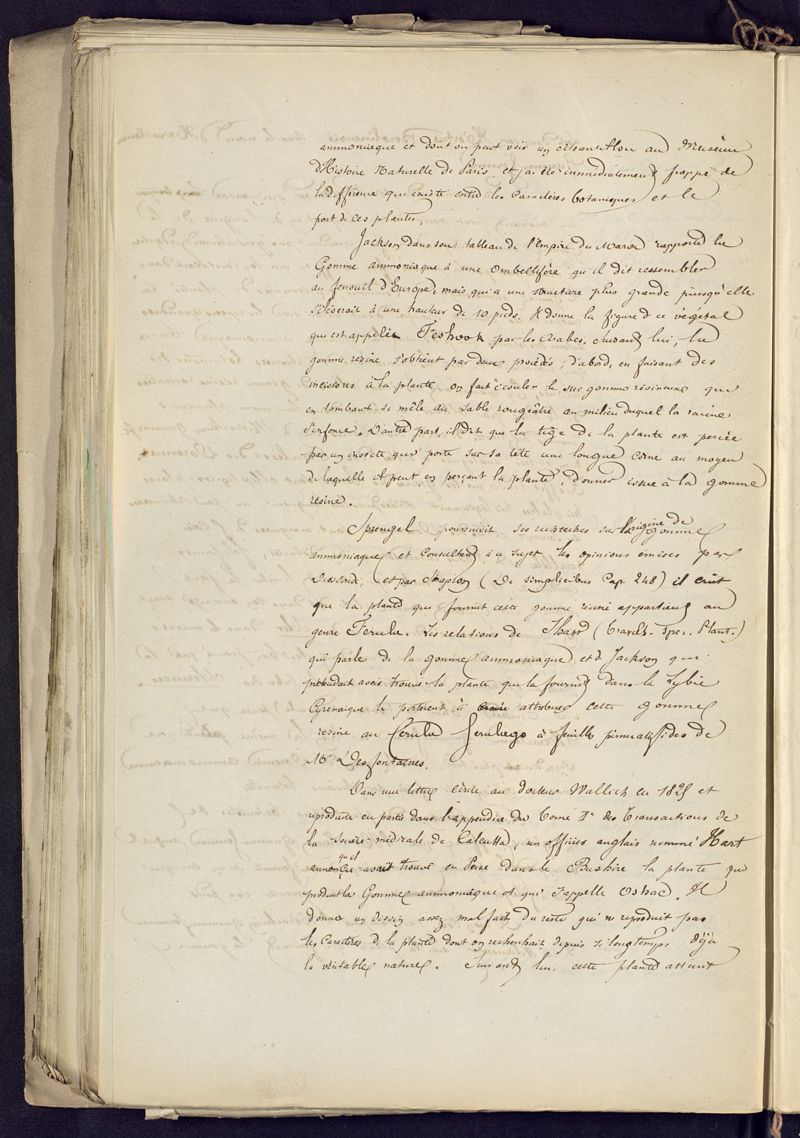 ammoniaque et dont on peut voir un échantillon au Muséum
d'Histoire Naturelle de Paris, et j'ai été immédiatement frappé de
la différence qui existe entre les caractères botaniques et le
port de ces plantes.
Jackson dans son tableau de l'Empire du Maroc rapporte la
Gomme ammoniaque à une ombellifère qu'il dit ressembler
au fenouil d'Europe, mais qui a une structure plus grande puisqu'elle
s'élèverait à une hauteur de 10 pieds. Il donne la figure de ce végétal
qui est appelée Feshook par les Arabes. Suivant lui, la
gomme résine s'obtient par deux procédés; d'abord, en faisant des
incisions à la plante on fait écouler le suc gommo résineux qui
en tombant se mêle au sable rougeâtre au milieu duquel la racine
s'enfonce. D'autre part, il dit que la tige de la plante est percée
par un insecte qui porte sur sa tête une longue corne au moyen
de laquelle il peut, en perçant la plante, donner issue à la gomme
résine.
Sprengel poursuivit ses recherches sur l'origine de gomme
ammoniaque et consultant à ce sujet les opinions émises par
et par (De simplicibus Cap. 248) il crut
que la plante qui fournit cette gomme résine appartient au
genre Ferula. Les relations de Shaw (spec. Plant.)
qui parle de la gomme ammoniaque et de Jackson qui
prétendait avoir trouvé la plante qui la fournit dans la Lybie
Cyrénaique le portèrent à croire attribuer cette gomme
résine au Ferula Ferulago à feuilles de
Mr Desfontaines.
Dans une lettre écrite au docteur Wallich en 1825 et
reproduite en partie dans l'appendice du Tome 1er des Transactions de
la Société médicale de Calcutta, un officier anglais nommé Hart
annonce qu'il avait trouvé en Perse dans le Bushire la plante qui
produit la Gomme ammoniaque et qui s'appelle Oshac. Il
donne un dessin assez mal fait du reste qui ne reproduit pas
les caractères de la plante dont on recherchait depuis si longtemps déjà
la véritable nature. Suivant lui, cette plante atteint